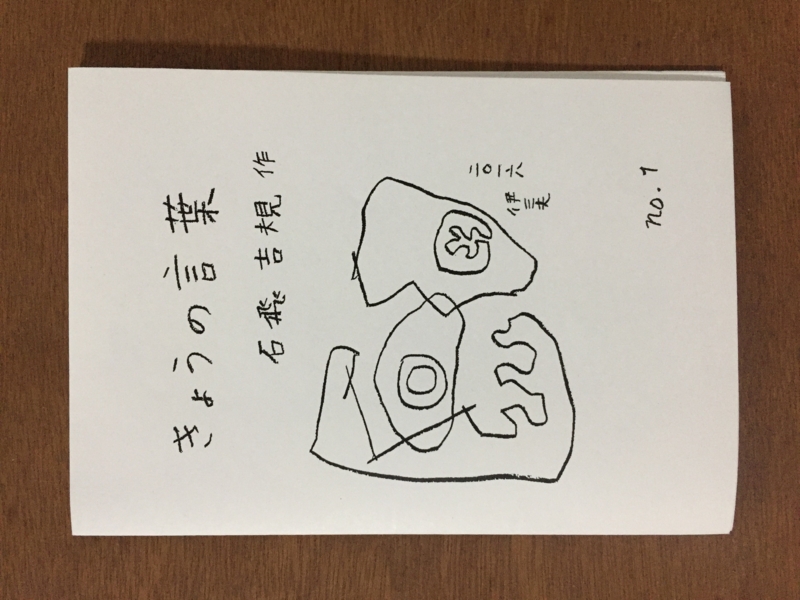 きょうの言葉
石飛吉規 作
二〇一六
伊三夫
no. 1